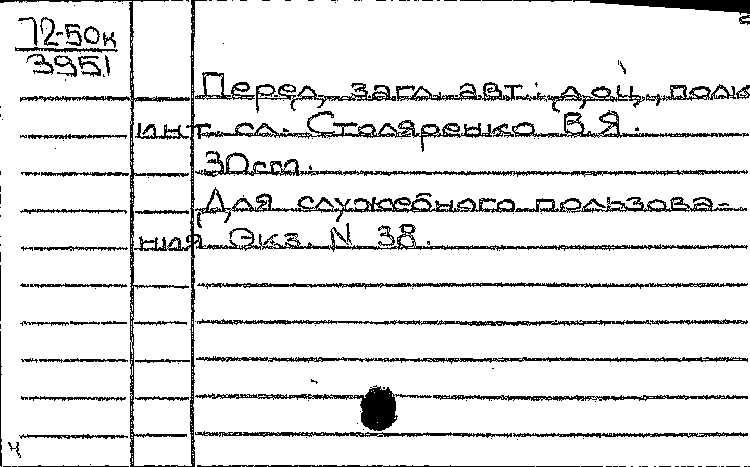 72-50к
3951
Перед загл. авт.: доц., полк
инт. сл. Столяренко В.Я.
30 ст.
Для служебного пользова-
ния Экз. N 38.
ч